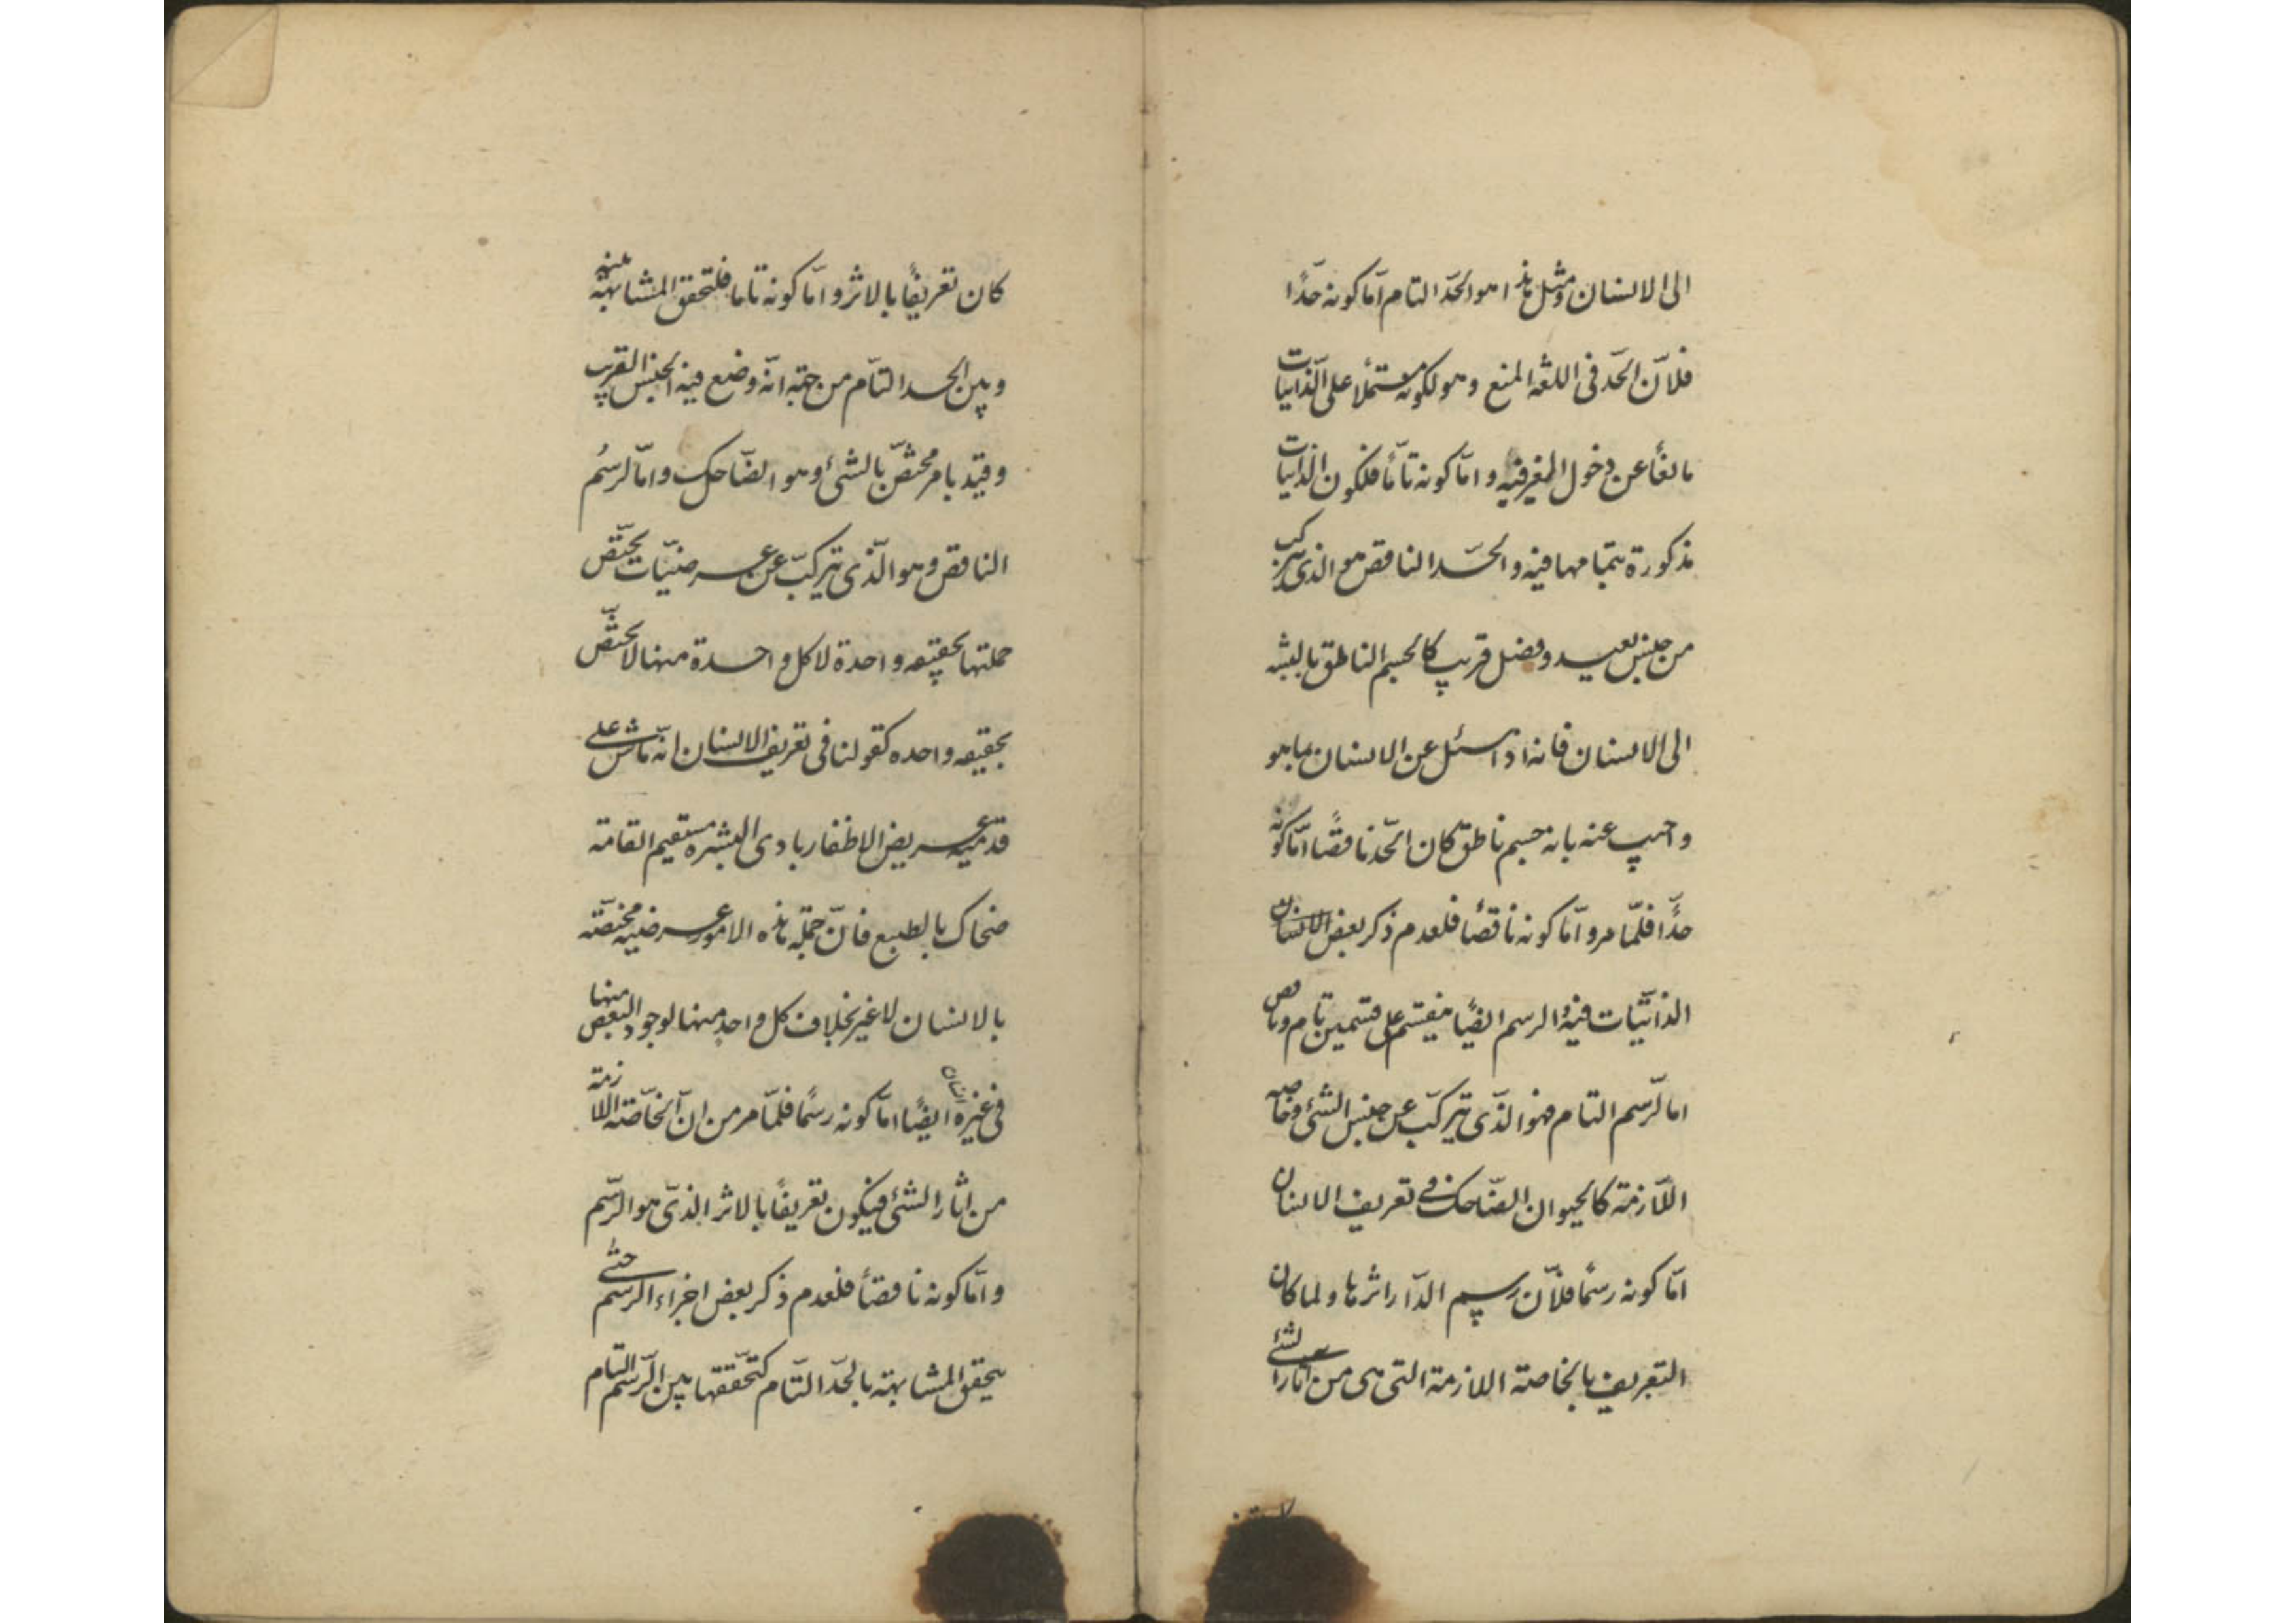 الی الانسان ومثل هذا هو الحدّ التام امّا کونه حدًّا
فلانّ الحدّ فی اللغة المنع وهو لکونه مشتملًا علی الذاتیات
مانعًا عن دخول الغیر فیه وامّا کونه تامّا فلکون الذاتیات
مذکورة بتمامها فیه والحدّ الناقص هو الذی یترکب
من جنس بعید وفصل قریب کالجسم الناطق بالنسبه
الی الانسان فانه اذا سئل عن الانسان بما هو
واجیب عنه بانه جسم ناطق کان الحدّ ناقصًا امّا کونه
حدًّا فلمّا مر وامّا کونه ناقصًا فلعدم ذکر بعض
الذاتیّات فیه والرسم ایضًا ینقسم علی قسمین تام وناقص
اما الرّسم التام فهو الذّی یترکّب عن جنس الشئ وخاصه
اللّازمة کالحیوان الضّاحک فی تعریف الانسان
امّا کونه رسمًا فلانّ رسم الدّار اثرها ولما کان
التعریف بالخاصة اللازمة التی هی من آثار الشئ
کان تعریفًا بالاثر وامّا کونه تاما فلتحقق المشابهة بینه
وبین الحد التّام من جهة انّه وضع فیه الجنس القریب
وقیّد بامر مختصّ بالشئ وهو الضّاحک وامّا الرسم
الناقص وهو الّذی یترکّب عن عرضیّات یختّص
جملتها بحقیقه واحدة لا کل واحدة منها لا یختّص
بحقیقه واحده کقولنا فی تعریف الانسان انّه ماش علی
قدمیه عریض الاظفار بادی البشره مستقیم القامة
ضحاک بالطبع فانّ جملة هذه الامور عرضیه مختصّه
بالانسان لا غیر بخلاف کل واحد منها لوجود البعض منها
فی غیره ایضًا امّا کونه رسمًا فلمّا مر من انّ الخاصّة اللازمة
من اثار الشئ فیکون تعریفًا بالاثر الذیّ هو الرّسم
وامّا کونه ناقصًا فلعدم ذکر بعض اجزاء الرسم حتّی
یحقق المشابهة بالحدّ التّام کتحقّقها بین الرّسم التام